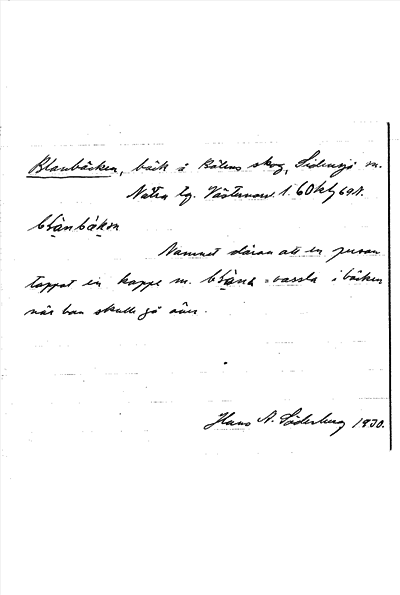 Blanbäcken, bäck å Bölens skog, Sidensjö sn.
Nätra tg. Västernorrl. l. 60kb69N.
blanbäkɘn
Namnet därav att en person
tappat en kappe m. blana = vassla i bäcken
när han skulle gå över.
Hans A. Söderberg 1930.